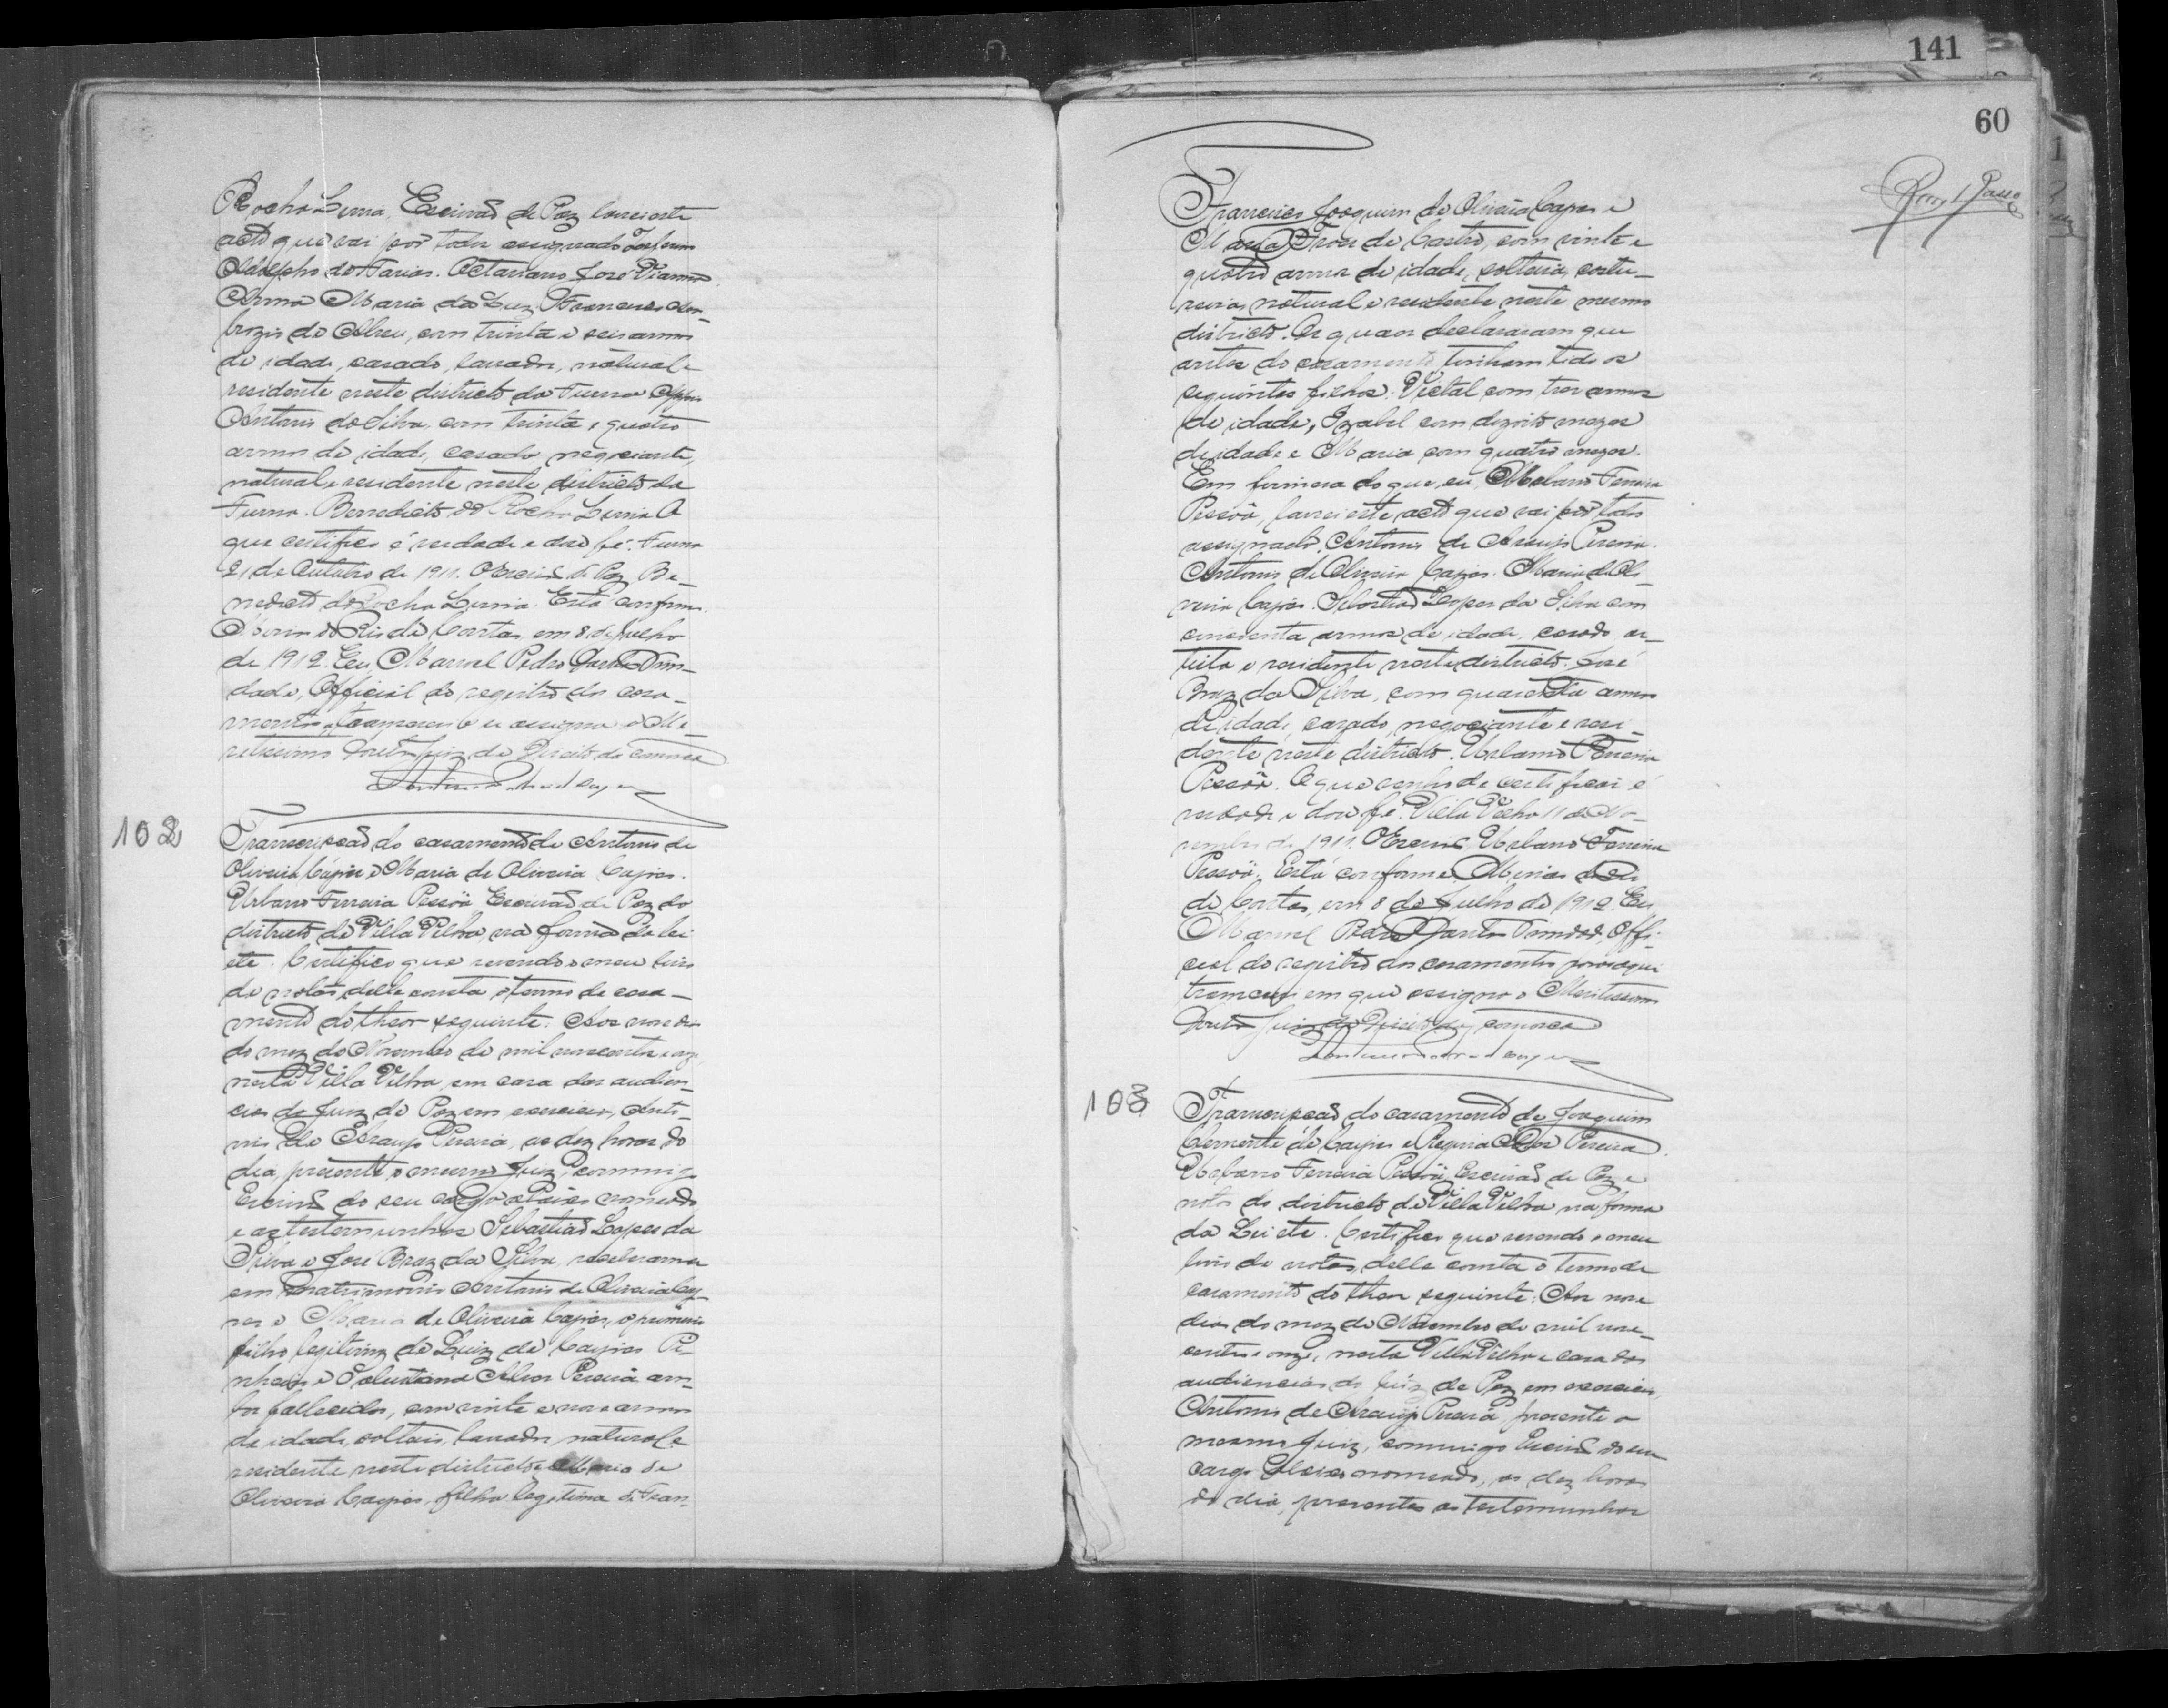 Rocha Lima, Escrivão de Paz lancei este
acto que vai por todos assignado
Adolpho de Farias. Octaviano José Vianna
Anna Maria da Luz, Francisco Am-
brozio de Abreu, com trinta e seis annos
de idade, casado, lavrador, natural e
residente neste districto da Furna
Antonio da Silva, com trinta e quatro
annos de idade, casado negociante,
natural e residente neste districto da
Furna. Benedicto da Rocha Lima O
que certifico é verdade e dou fé. Furna
21 de Outubro de 1911. O Escrivão de Paz Be-
nedicto da Rocha Lima. Está conforme.
Minas do Rio de Contas, em 8 de Julho
de 1912. Eu Manoel Pedro dos Santos Trin-
dade, Official do registro dos casa-
mentos, transcrevi e assigna o Me-
retissimo Doutor Juiz de Direito da comarca
102
Transcripção do casamento de Antonio de
Oliveira Caijres e Maria de Oliveira Caijres.
Urbano Ferreira Pessôa Escrivão de Paz do
districto de Villa Velha, na forma da lei
etc. Certifico que revendo o meu livro
de notas delle consta o termo de casa-
mento do theor seguinte: Aos nove dias
do mez de Novembro de mil novecentos e onze
nesta Villa Velha, em casa das audien-
cias do Juiz de Paz em exercicio, Anto-
nio de Araujo Pereira, as dez horas do
dia, presente o mesmo Juiz, commigo
Escrivão do seu cargo abaixo nomeado
e as testemunhas Sebastião Lopes da
Silva e José Braz da Silva, receberam-se
em matrimonio Antonio de Oliveira Caij-
res e Maria de Oliveira Caijres, o primeiro
filho legitimo de Luiz de Caijres Pi-
nheiro e Salustiana Alves Pereira, am-
bos fallecidos, com vinte e nove annos
de idade, solteiro, lavrador, natural e
residente neste districto e Maria de
Oliveira Caijres, filha legitima de Fran-
141
60
Francisco Joaquim de Oliveira Caijres e
Maria de Castro, com vinte e
quatro annos de idade, solteira, costu-
reira, natural e residente neste mesmo
districto. Os quaes declararam que
antes do casamento tinham tido os
seguintes filhos: Victal com tres annos
de idade, Izabel com dezoito mezes
de idade e Maria com quatro mezes.
Em firmesa do que, eu, Urbano Ferreira
Pessôa, lancei este acto que vai por todos
assignado. Antonio de Araujo Pereira.
Antonio de Oliveira Caijres. Maria de Oli-
veira Caijres. Sebastião Lopes da Silva com
cincoenta annos de idade, casado, ar-
tista e residente neste districto. José
Braz da Silva, com quarenta annos
de idade, casado, negociante e resi-
dente neste districto. Urbano Ferreira
Pessôa. O que venho de certificar é
verdade e dou fé. Villa Velha 11 de No-
vembro de 1911. O Escrivão Urbano Ferreira
Pessôa. Está conforme. Minas do Rio
de Contas, em 8 de Julho de 1912. Eu
Manoel Pedro dos Santos Trindade, Offi-
cial do registro dos casamentos para aqui
transcrevi em que assigna o Meritissimo
Doutor Juiz de Direito da comarca
103
Transcripção do casamento de Joaquim
Clemente de Caijres e Regina Alves Pereira.
Urbano Ferreira Pessôa, Escrivão de Paz e
notas do districto de Villa Velha na forma
da Lei etc. Certifico que revendo o meu
livro de notas, delle consta o termo de
casamento do theor seguinte: Aos nove
dias do mez de Novembro de mil nove-
centos e onze, nesta Villa Velha e casa das
audiencias do Juiz de Paz em exercicio,
Antonio de Araujo Pereira, presente o
mesmo Juiz, commigo Escrivão do seu
cargo abaixo nomeado, as dez horas
do dia, presentes as testemunhas